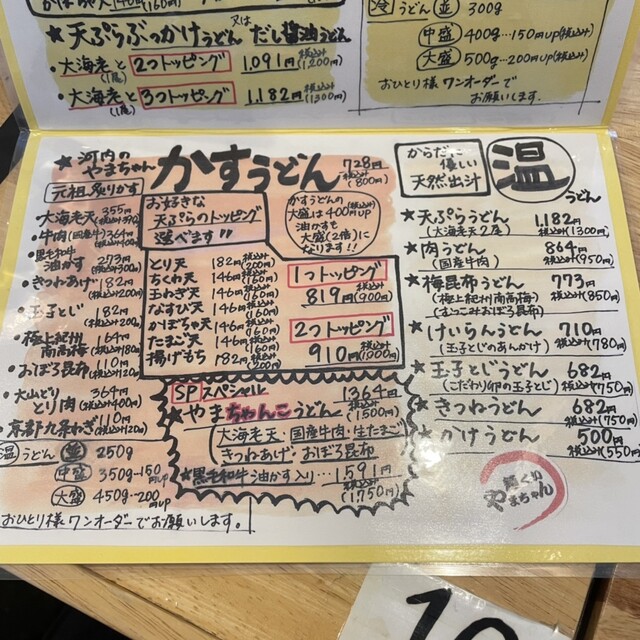 140円(160円)
★天ぷらぶっかけうどん 又は だし醤油うどん
・大海老と 2つトッピング 1,091円 税込み(1,200円)
(1尾)
・大海老と 3つトッピング 1,182円 税込み(1300円)
(1尾)
冷 うどん 並 300g
中盛 400g…150円UP(税込み)
大盛 500g…200円UP(税込み)
おひとり様ワンオーダーで
お願いします。
★河内の
やまちゃん
かすうどん 728円
税込み(800円)
元祖 炙りかす
・大海老天 355円
・牛肉(国産牛) 364円
・黒毛和牛
油かす 273円
税込み(300円)
・きつねあげ 182円
税込み(200円)
・玉子とじ 182円
税込み(200円)
・極上紀州
南高梅 164円
税込み(180円)
・おぼろ昆布 110円
税込み(120円)
・大山どり
とり肉 364円
税込み(400円)
・京都九条ねぎ 110円
税込み(120円)
温 うどん 並 250g
中盛 350g…150円UP
大盛 450g…200円UP
おひとり様ワンオーダーでお願いします。
お好きな
天ぷらのトッピング
選べます!!
かすうどんの
大盛は400円UP
油かすも
大盛(2倍)に
なります!!
とり天 182円 税込み(200円)
ちくわ天 146円 税込み(160円)
玉ねぎ天 146円 税込み(160円)
なすび天 146円 税込み(160円)
かぼちゃ天 146円 税込み(160円)
たまご天 146円 税込み(160円)
揚げもち 182円 税込み(200円)
1つトッピング
819円 税込み(900円)
2つトッピング
910円 税込み(1000円)
SPスペシャル
★やまちゃんこうどん 1364円
税込み(1500円)
大海老天・国産牛肉・生たまご
きつねあげ・おぼろ昆布
★黒毛和牛油かす入り…1,591円
税込み(1750円)
からだに
優しい
天然出汁
温 うどん
★天ぷらうどん 1,182円
(大海老天2尾) 税込み(1300円)
★肉うどん 864円
(国産牛肉) 税込み(950円)
★梅昆布うどん 773円
(極上紀州南高梅) 税込み(850円)
(すっこみおぼろ昆布)
★けいらんうどん 710円
(玉子とじのあんかけ) 税込み(780円)
★玉子とじうどん 682円
(こだわり卵の玉子とじ) 税込み(750円)
★きつねうどん 682円
税込み(750円)
★かけうどん 500円
税込み(550円)
麺くい
やまちゃん